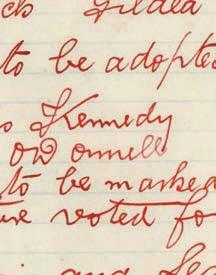 to be adopted
Kennedy
O'Donnell
to be marked
voted fo
and